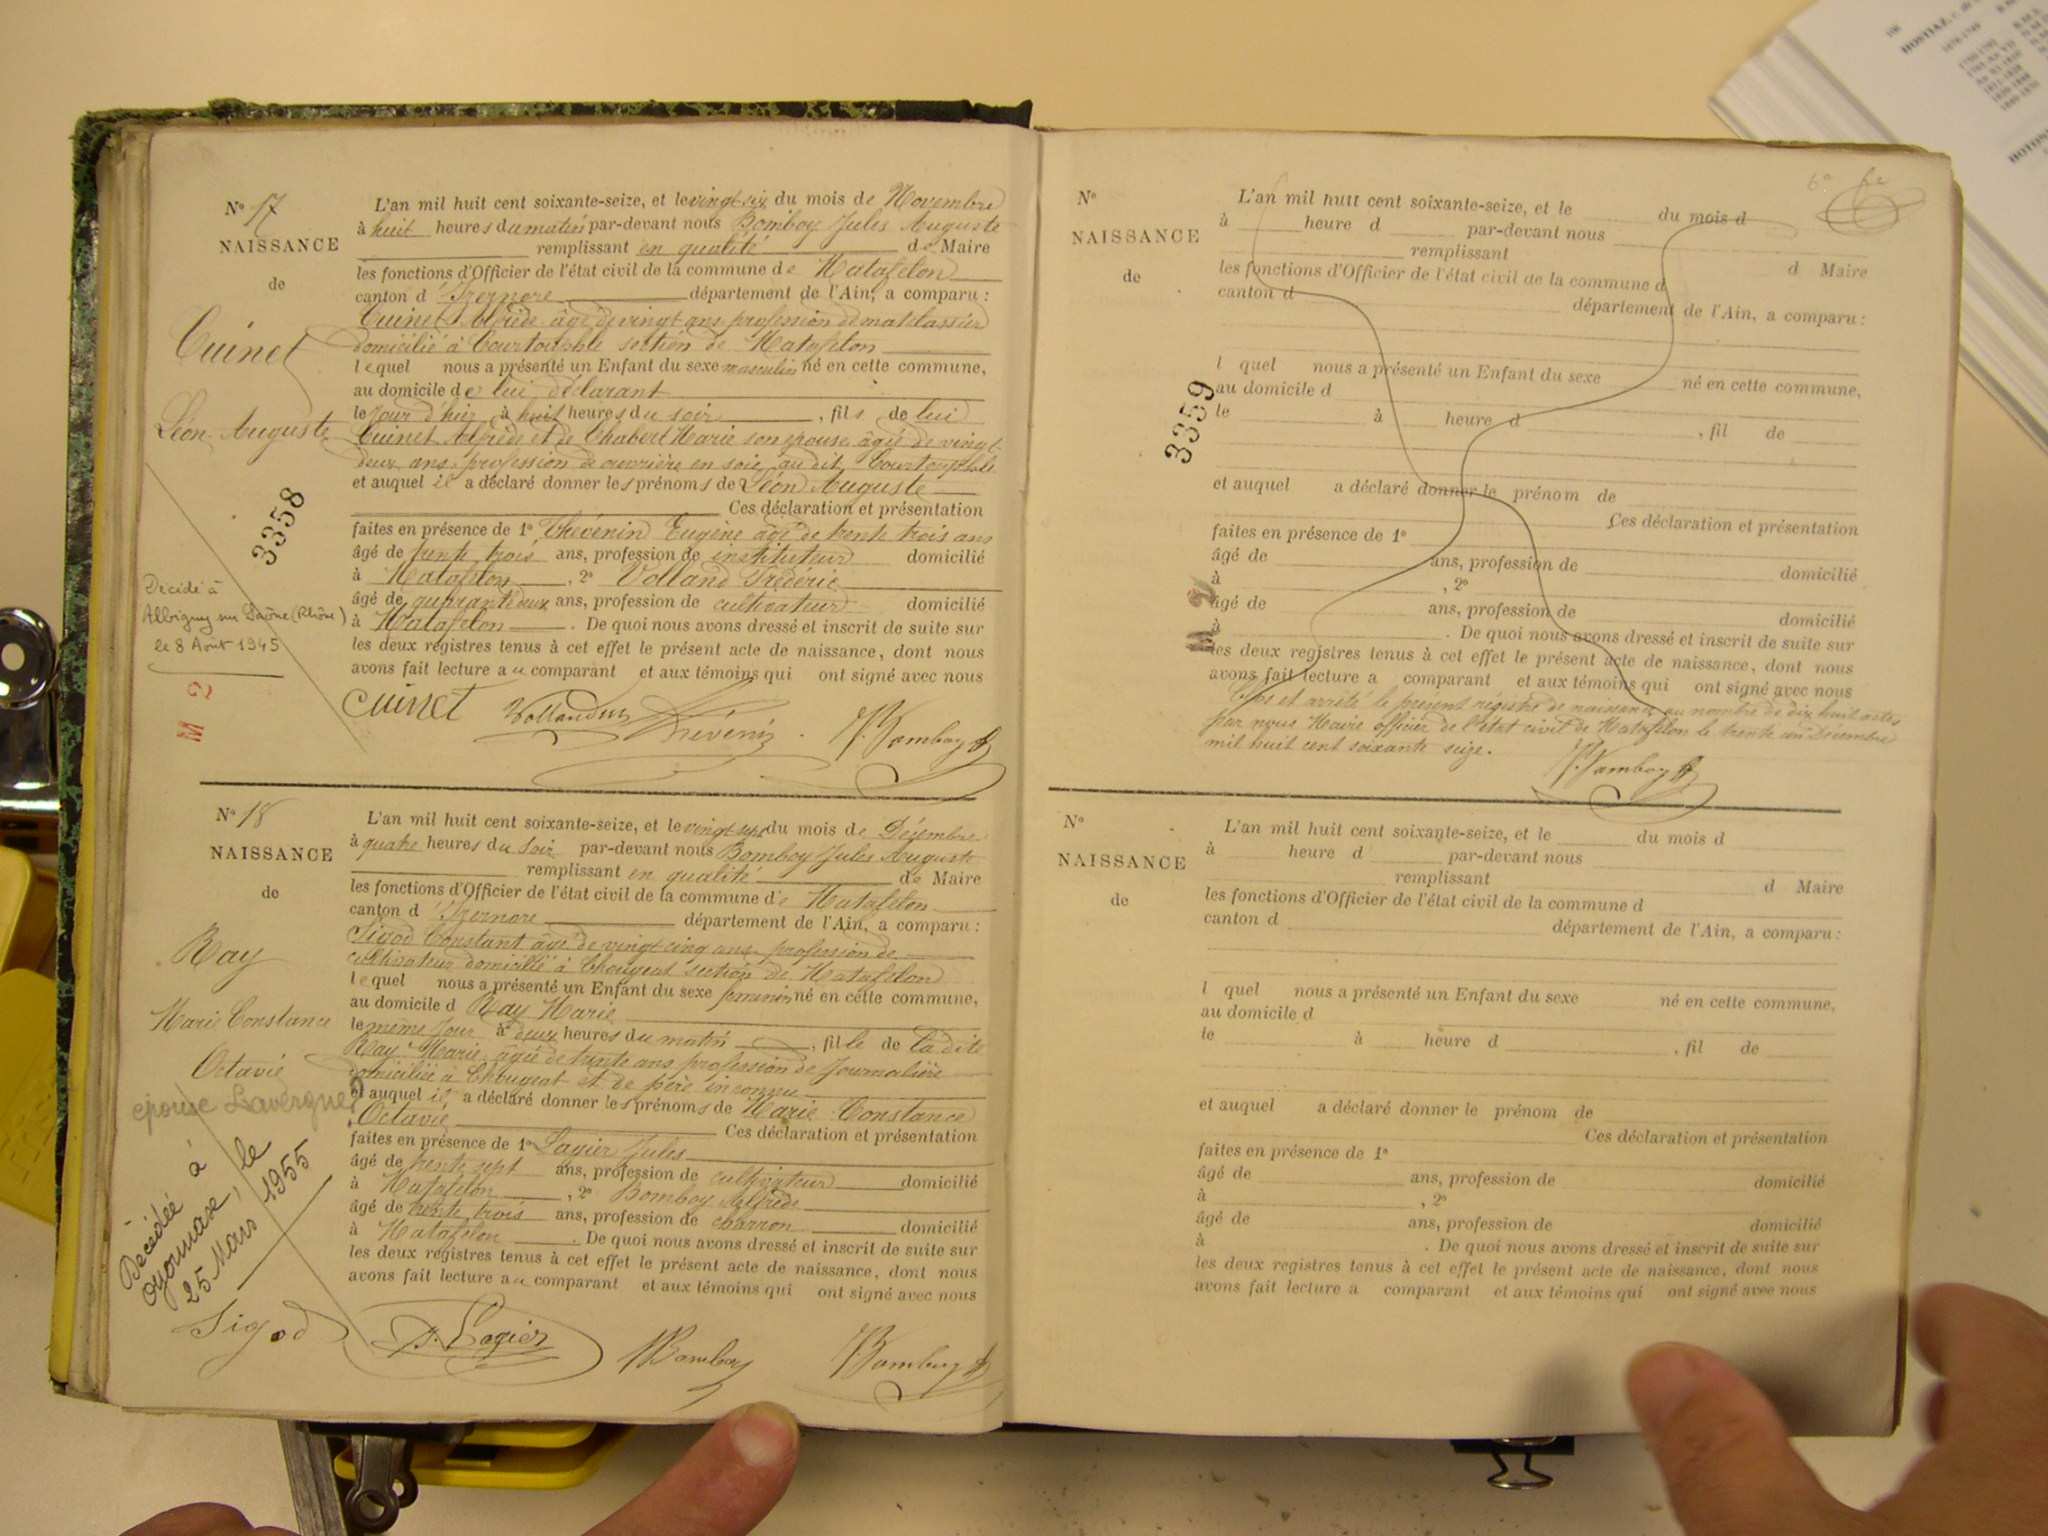 N° 17
NAISSANCE
de
Cuinet
Léon Auguste
3358
Décédé à
Albigny sur Saône (Rhône)
le 8 Août 1945
M 2
L'an mil huit cent soixante-seize, et le vingt six du mois de Novembre
à huit heures du matin par-devant nous Bomboy Jules Auguste
remplissant en qualité de Maire
les fonctions d'Officier de l'état civil de la commune de Matafelon
canton d'Izernore département de l'Ain, a comparu :
Cuinet Alfrède âgé de vingt ans profession de matelassier
domicilié à Courtouphle section de Matafelon
lequel nous a présenté un Enfant du sexe masculin né en cette commune,
au domicile de lui déclarant
le jour d'hier à huit heures du soir , fils de lui
Cuinet Alfrède et de Chabert Marie son épouse âgée de vingt-
deux ans, profession de ouvrière en soie, au dit Courtouphle
et auquel il a déclaré donner les prénoms de Léon Auguste
Ces déclaration et présentation
faites en présence de 1° Thévenin Eugène âgé de trente trois ans
âgé de trente trois ans, profession de instituteur domicilié
à Matafelon , 2° Volland Frédéric
âgé de quarante deux ans, profession de cultivateur domicilié
à Matafelon . De quoi nous avons dressé et inscrit de suite sur
les deux registres tenus à cet effet le présent acte de naissance, dont nous
avons fait lecture au comparant et aux témoins qui ont signé avec nous
Cuinet Thévenin J. Bomboy
N° 18
NAISSANCE
de
Ray
Marie Constance
Octavie
épouse Lavergne
Décédée à
Oyonnax, le
25 Mars 1955
L'an mil huit cent soixante-seize, et le vingt sept du mois de Décembre
à quatre heures du soir par-devant nous Bomboy Jules Auguste
remplissant en qualité de Maire
les fonctions d'Officier de l'état civil de la commune de Matafelon
canton d'Izernore département de l'Ain, a comparu :
Sigod Constant âgé de vingt cinq ans, profession de
cultivateur domicilié à Chougeat section de Matafelon
lequel nous a présenté un Enfant du sexe feminin né en cette commune,
au domicile d Ray Marie
le même jour à deux heures du matin , fille de la dite
Ray Marie âgée de trente ans profession de journalière
domiciliée à Chougeat et de père inconnu
et auquel il a déclaré donner les prénoms de Marie Constance
Octavie Ces déclaration et présentation
faites en présence de 1° Lagier Jules
âgé de trente sept ans, profession de cultivateur domicilié
à Matafelon , 2° Bomboy Alfrède
âgé de trente trois ans, profession de charron domicilié
à Matafelon . De quoi nous avons dressé et inscrit de suite sur
les deux registres tenus à cet effet le présent acte de naissance, dont nous
avons fait lecture au comparant et aux témoins qui ont signé avec nous
Sigod J. Lagier Bomboy J. Bomboy
N°
NAISSANCE
de
3359
M 2
L'an mil huit cent soixante-seize, et le du mois d
à heure d par-devant nous
remplissant d Maire
les fonctions d'Officier de l'état civil de la commune d
canton d département de l'Ain, a comparu :
l quel nous a présenté un Enfant du sexe né en cette commune,
au domicile d
le à heure d , fil de
et auquel a déclaré donner le prénom de
Ces déclaration et présentation
faites en présence de 1°
âgé de ans, profession de domicilié
à , 2°
âgé de ans, profession de domicilié
à . De quoi nous avons dressé et inscrit de suite sur
les deux registres tenus à cet effet le présent acte de naissance, dont nous
avons fait lecture a comparant et aux témoins qui ont signé avec nous
Clos et arrêté le présent régistre de naissance au nombre de dix huit actes
par nous Maire officier de l'état civil de Matafelon le trente un Décembre
mil huit cent soixante seize.
J. Bomboy
N°
NAISSANCE
de
L'an mil huit cent soixante-seize, et le du mois d
à heure d par-devant nous
remplissant d Maire
les fonctions d'Officier de l'état civil de la commune d
canton d département de l'Ain, a comparu :
l quel nous a présenté un Enfant du sexe né en cette commune,
au domicile d
le à heure d , fil de
et auquel a déclaré donner le prénom de
Ces déclaration et présentation
faites en présence de 1°
âgé de ans, profession de domicilié
à , 2°
âgé de ans, profession de domicilié
à . De quoi nous avons dressé et inscrit de suite sur
les deux registres tenus à cet effet le présent acte de naissance, dont nous
avons fait lecture a comparant et aux témoins qui ont signé avec nous